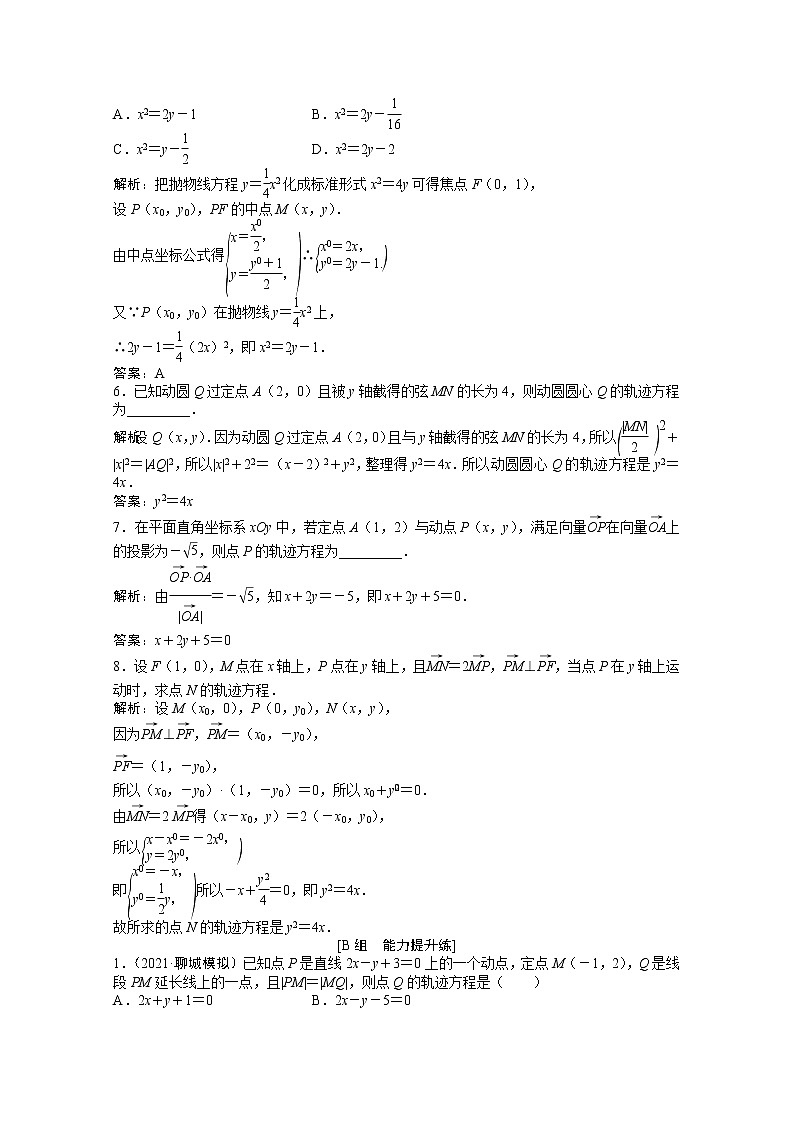 A.x²=2y-1 B.x²=2y-1/16
C.x²=y-1/2 D.x²=2y-2
解析:把抛物线方程 y=1/4x²化成标准形式 x²=4y 可得焦点 F(0,1),
设 P(x₀,y₀),PF 的中点 M(x,y).
由中点坐标公式得{x=x0/2, y=y0+1/2,)∴{x0=2x, y0=2y-1.)
又∵P(x₀,y₀)在抛物线 y=1/4x²上,
∴2y-1=1/4(2x)²,即 x²=2y-1.
答案:A
6.已知动圆 Q 过定点 A(2,0)且被 y 轴截得的弦 MN 的长为 4,则动圆圆心 Q 的轨迹方程
为_________.
解析:设 Q(x,y).因为动圆 Q 过定点 A(2,0)且与 y 轴截得的弦 MN 的长为 4,所以(|MN|/2)²+
|x|²=|AQ|²,所以|x|²+2²=(x-2)²+y²,整理得 y²=4x.所以动圆圆心 Q 的轨迹方程是 y²=
4x.
答案:y²=4x
7.在平面直角坐标系 xOy 中,若定点 A(1,2)与动点 P(x,y),满足向量OP→在向量OA→上
的投影为-√5,则点 P 的轨迹方程为_________.
解析:由OP→·OA→/|OA→|=-√5,知 x+2y=-5,即 x+2y+5=0.
答案:x+2y+5=0
8.设 F(1,0),M 点在 x 轴上,P 点在 y 轴上,且MN→=2MP→,PM→⊥PF→,当点 P 在 y 轴上运
动时,求点 N 的轨迹方程.
解析:设 M(x₀,0),P(0,y₀),N(x,y),
因为PM→⊥PF→,PM→=(x₀,-y₀),
PF→=(1,-y₀),
所以(x₀,-y₀)·(1,-y₀)=0,所以 x₀+y=0.
由MN→=2 MP→得(x-x₀,y)=2(-x₀,y₀),
所以{x-x0=-2x0, y=2y0,)
即{x0=-x, y0=1/2y,)所以-x+y2/4=0,即 y²=4x.
故所求的点 N 的轨迹方程是 y²=4x.
[B 组 能力提升练]
1.(2021·聊城模拟)已知点 P 是直线 2x-y+3=0 上的一个动点,定点 M(-1,2),Q 是线
段 PM 延长线上的一点,且|PM|=|MQ|,则点 Q 的轨迹方程是( )
A.2x+y+1=0 B.2x-y-5=0